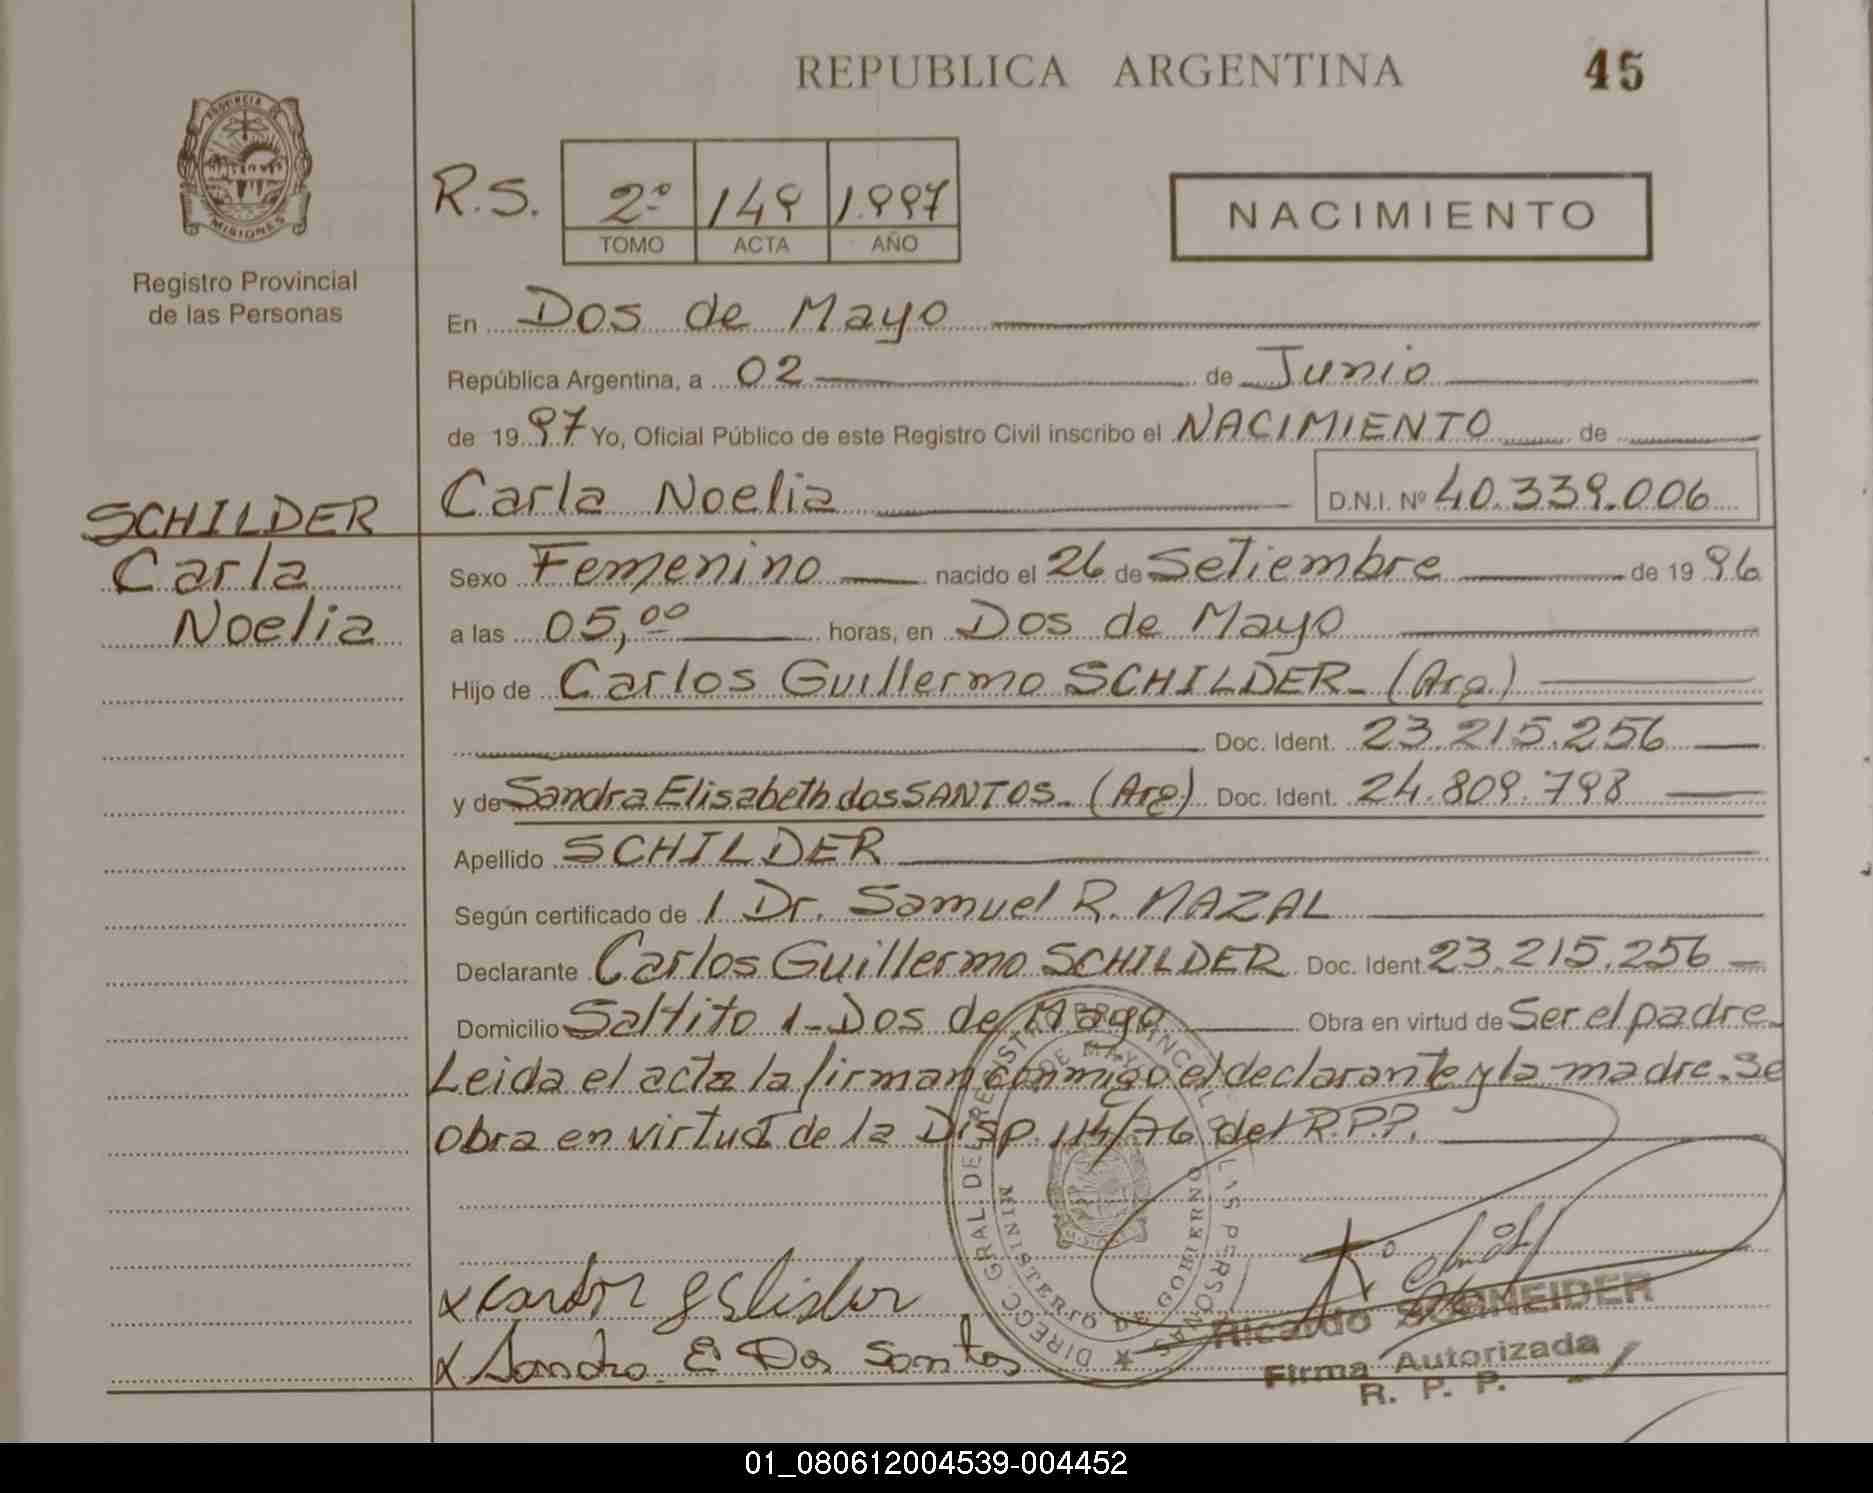 REPUBLICA ARGENTINA 45
PROVINCIA DE
MISIONES
Registro Provincial
de las Personas
R.S. 2º 149 1.997
TOMO ACTA AÑO
NACIMIENTO
En Dos de Mayo
República Argentina, a 02 de Junio
de 1997 Yo, Oficial Público de este Registro Civil inscribo el NACIMIENTO de
Carla Noelia D.N.I. Nº 40.339.006
SCHILDER
Carla
Noelia
Sexo Femenino nacido el 26 de Setiembre de 1996
a las 05,00 horas, en Dos de Mayo
Hijo de Carlos Guillermo SCHILDER- (Arg.)
Doc. Ident. 23.215.256
y de Sandra Elisabeth dos SANTOS- (Arg.) Doc. Ident. 24.809.798
Apellido SCHILDER
Según certificado de 1 Dr. Samuel R. MAZAL
Declarante Carlos Guillermo SCHILDER Doc. Ident 23.215.256
Domicilio Saltito 1-Dos de Mayo Obra en virtud de Ser el padre-
Leida el acta la firman conmigo el declarante y la madre-Se
obra en virtud de la Disp 114/76 del R.P.P.
DIRECC GRAL DEL REGISTRO PROVINCIAL DE LAS PERSONAS
MINISTERIO DE GOBIERNO
DE MAYO
x Carlos G Schilder
x Sandra E Dos Santos
Ricardo SCHNEIDER
Firma Autorizada
R. P. P.
01_080612004539-004452